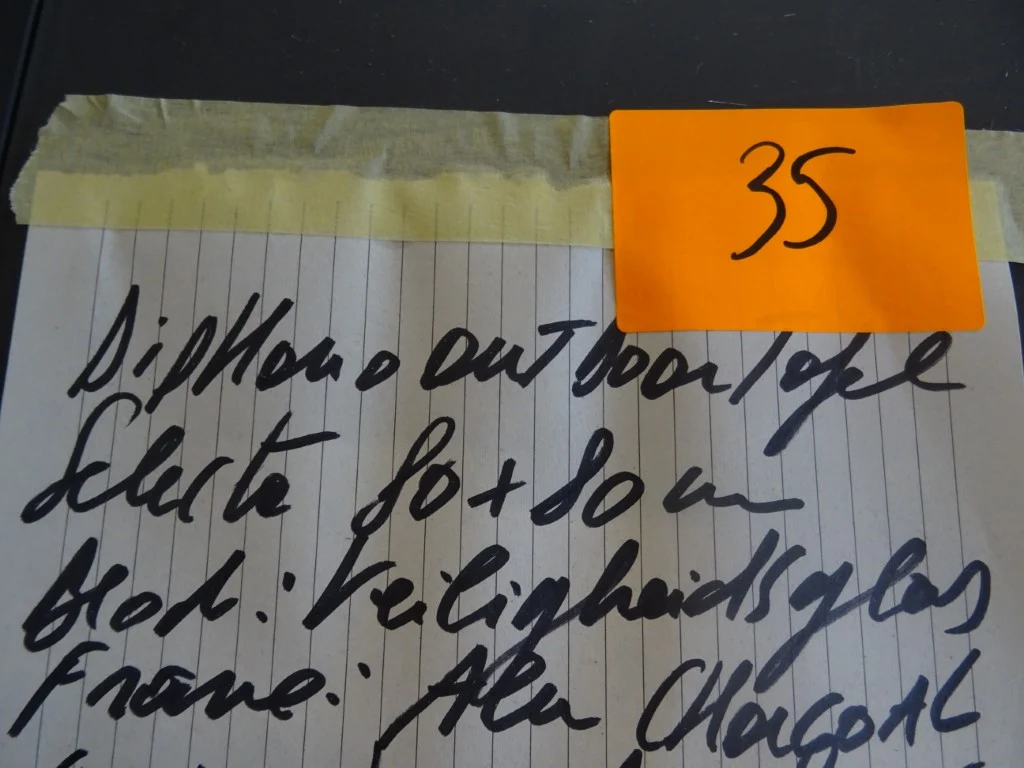 35
Diphano outdoor Tafel
Selecta 80 x 80 cm
Blad: Veiligheidsglas
Frame: Alu CHarcoAL